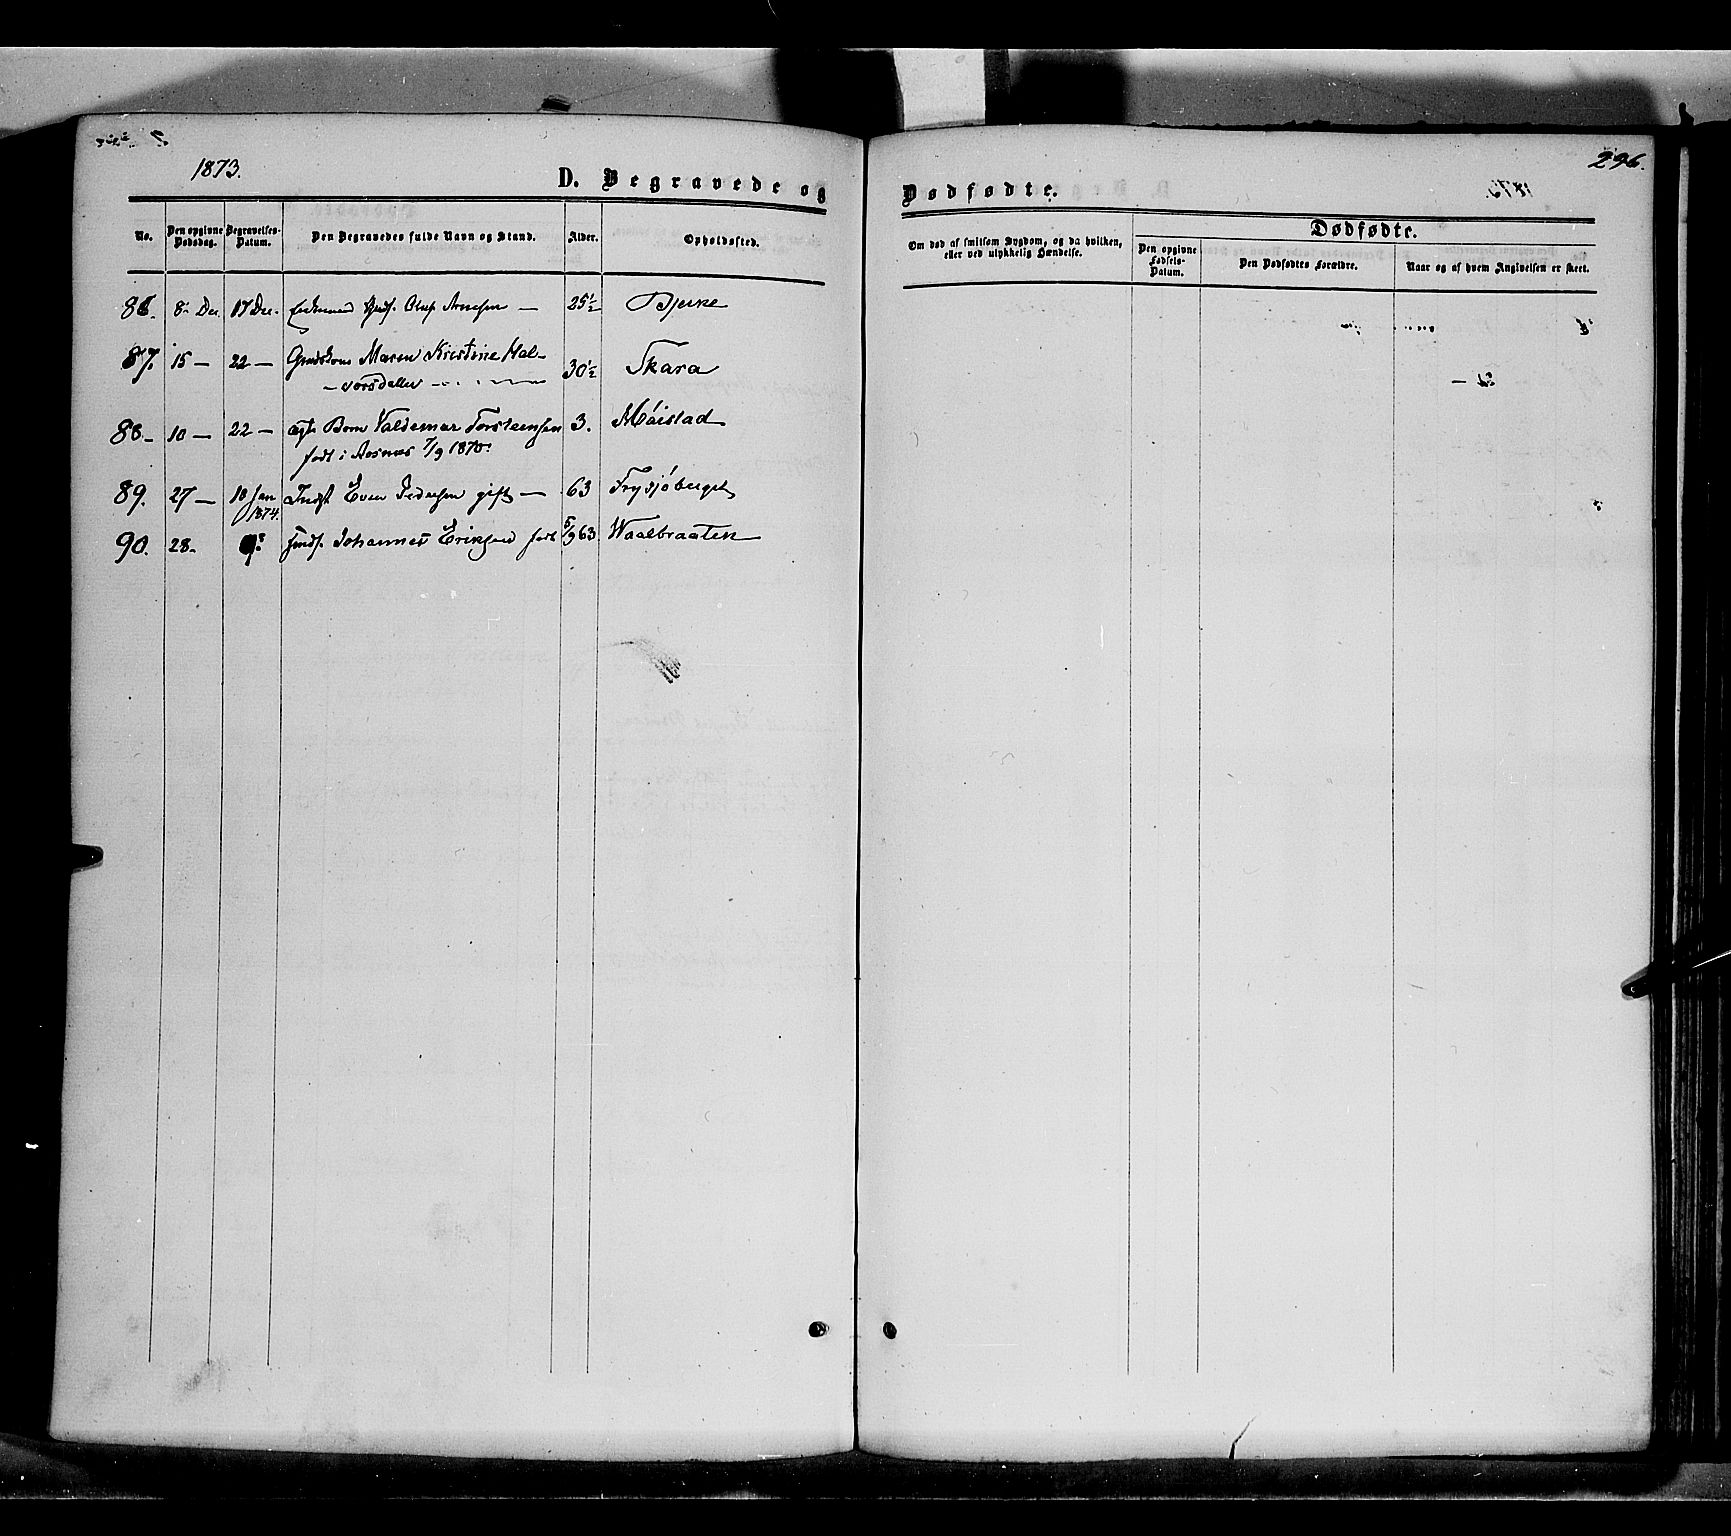 1873.
296.
D. Begravede og Dødfødte.
No.
Den opgivne Dødsdag.
Begravelses-Datum.
Den Begravedes fulde Navn og Stand.
Alder.
Opholdssted.
Om død af smitsom Sygdom, og da hvilken,
eller ved ulykkelig Hændelse.
Dødfødte.
Den opgivne Fødsels-Datum.
Den Dødfødtes Forældre.
Naar og af hvem Angivelsen er skeet.
86. 8- Dec. 17 Dec. Arnesen — 25½ Bjerke
87. 15 — 22 — Maren Kristine Hal-
30½ Skara
88- 10 — 22 — Barn Valdemar Torsteensen 3. Møistad
født i Aasnæs 7/9 1870.
89. 27 — 10 Jan 1874. Indst Even Pedersen gift — 63 Frysjøberget
90. 28- Johannes Eriksen født 5/9 63 Waalbraaten